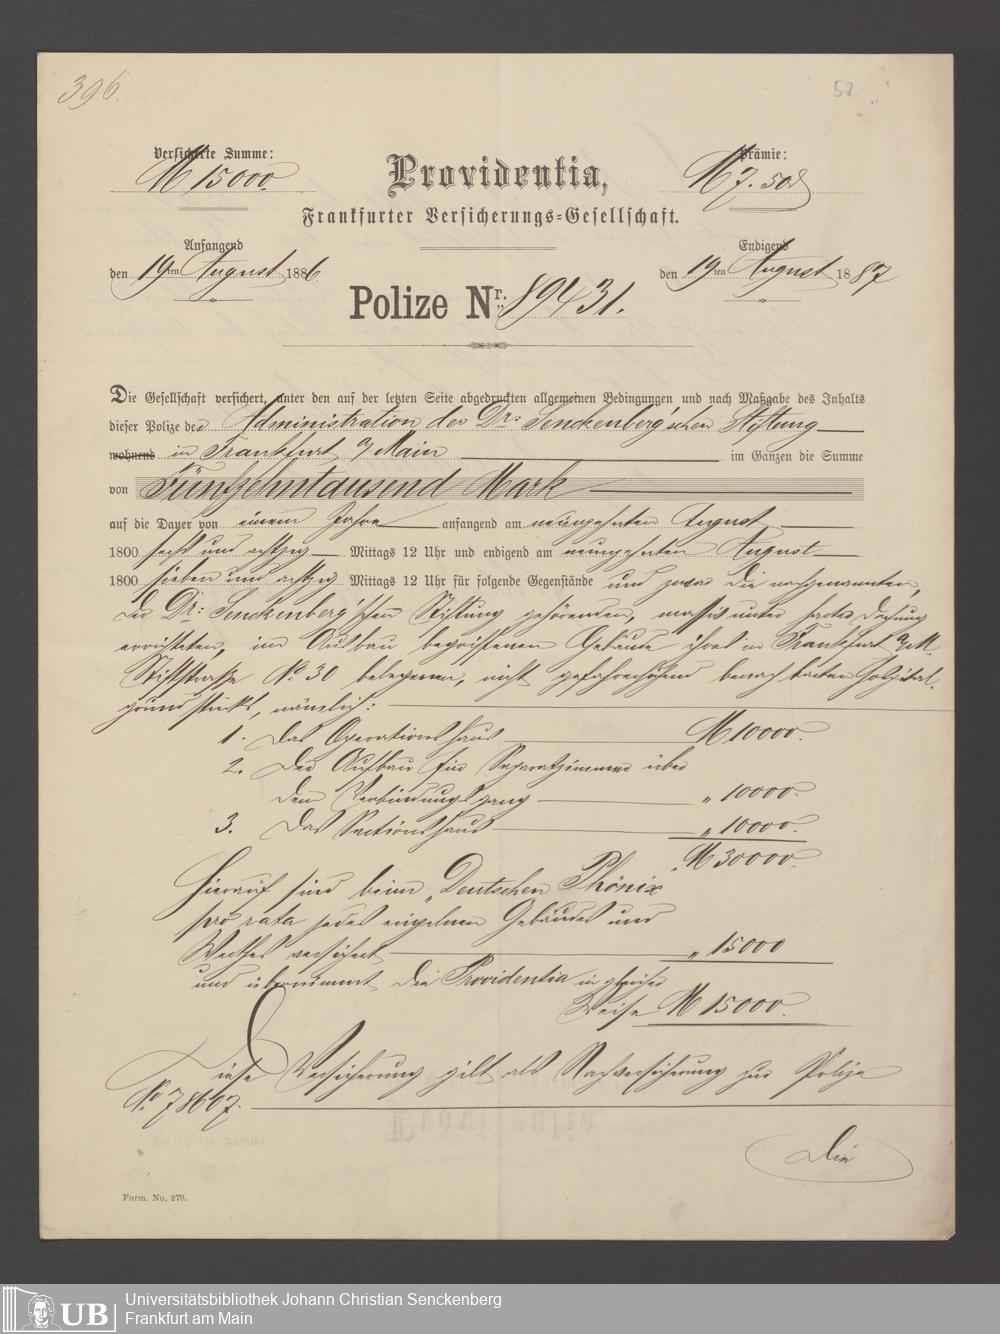 396.
52
Versicherte Summe:
M 15000.
Prämie:
M 7.50₰
Providentia,
Frankfurter Versicherungs-Gesellschaft.
Anfangend
den 19ten August 1886
Endigend
den 19ten August 1887
Polize Nr. 89431.
Die Gesellschaft versichert, unter den auf der letzten Seite abgedruckten allgemeinen Bedingungen und nach Maßgabe des Inhalts
dieser Polize der Administration der Dr: Senckenberg'schen Stiftung
wohnend in Frankfurt a/Main im Ganzen die Summe
von Fünfzehntausend Mark
auf die Dauer von einem Jahre anfangend am neunzehnten August
1800 sechs und achtzig Mittags 12 Uhr und endigend am neunzehnten August
1800 sieben und achtzig Mittags 12 Uhr für folgende Gegenstände und zwar die nachgenannten,
der Dr: Senckenberg'schen Stiftung gehörenden, massiv unter harter Dachung
errichteten, im Ausbau begriffenen Gebäude ihres in Frankfurt a/M.
Stiftstraße No. 30 belegenen, nicht gefahrerhöhend benachbarten Hospital-
grundstücks, nämlich:
1. Das Operationshaus M 10000.
2. Der Aufbau für Separatzimmer über
dem Verbindungsgang „ 10000.
3. Das Sectionshaus „ 10000.
M 30000.
Hierauf sind beim „Deutschen Phönix"
pro rata jedes einzelnen Gebäudes und
Werthes versichert „ 15000
und übernimmt die Providentia in gleicher
Weise M 15000.
Diese Versicherung gilt als Nachversicherung zur Polize
No. 78667.
Die
Form. No. 279.
UB
Universitätsbibliothek Johann Christian Senckenberg
Frankfurt am Main